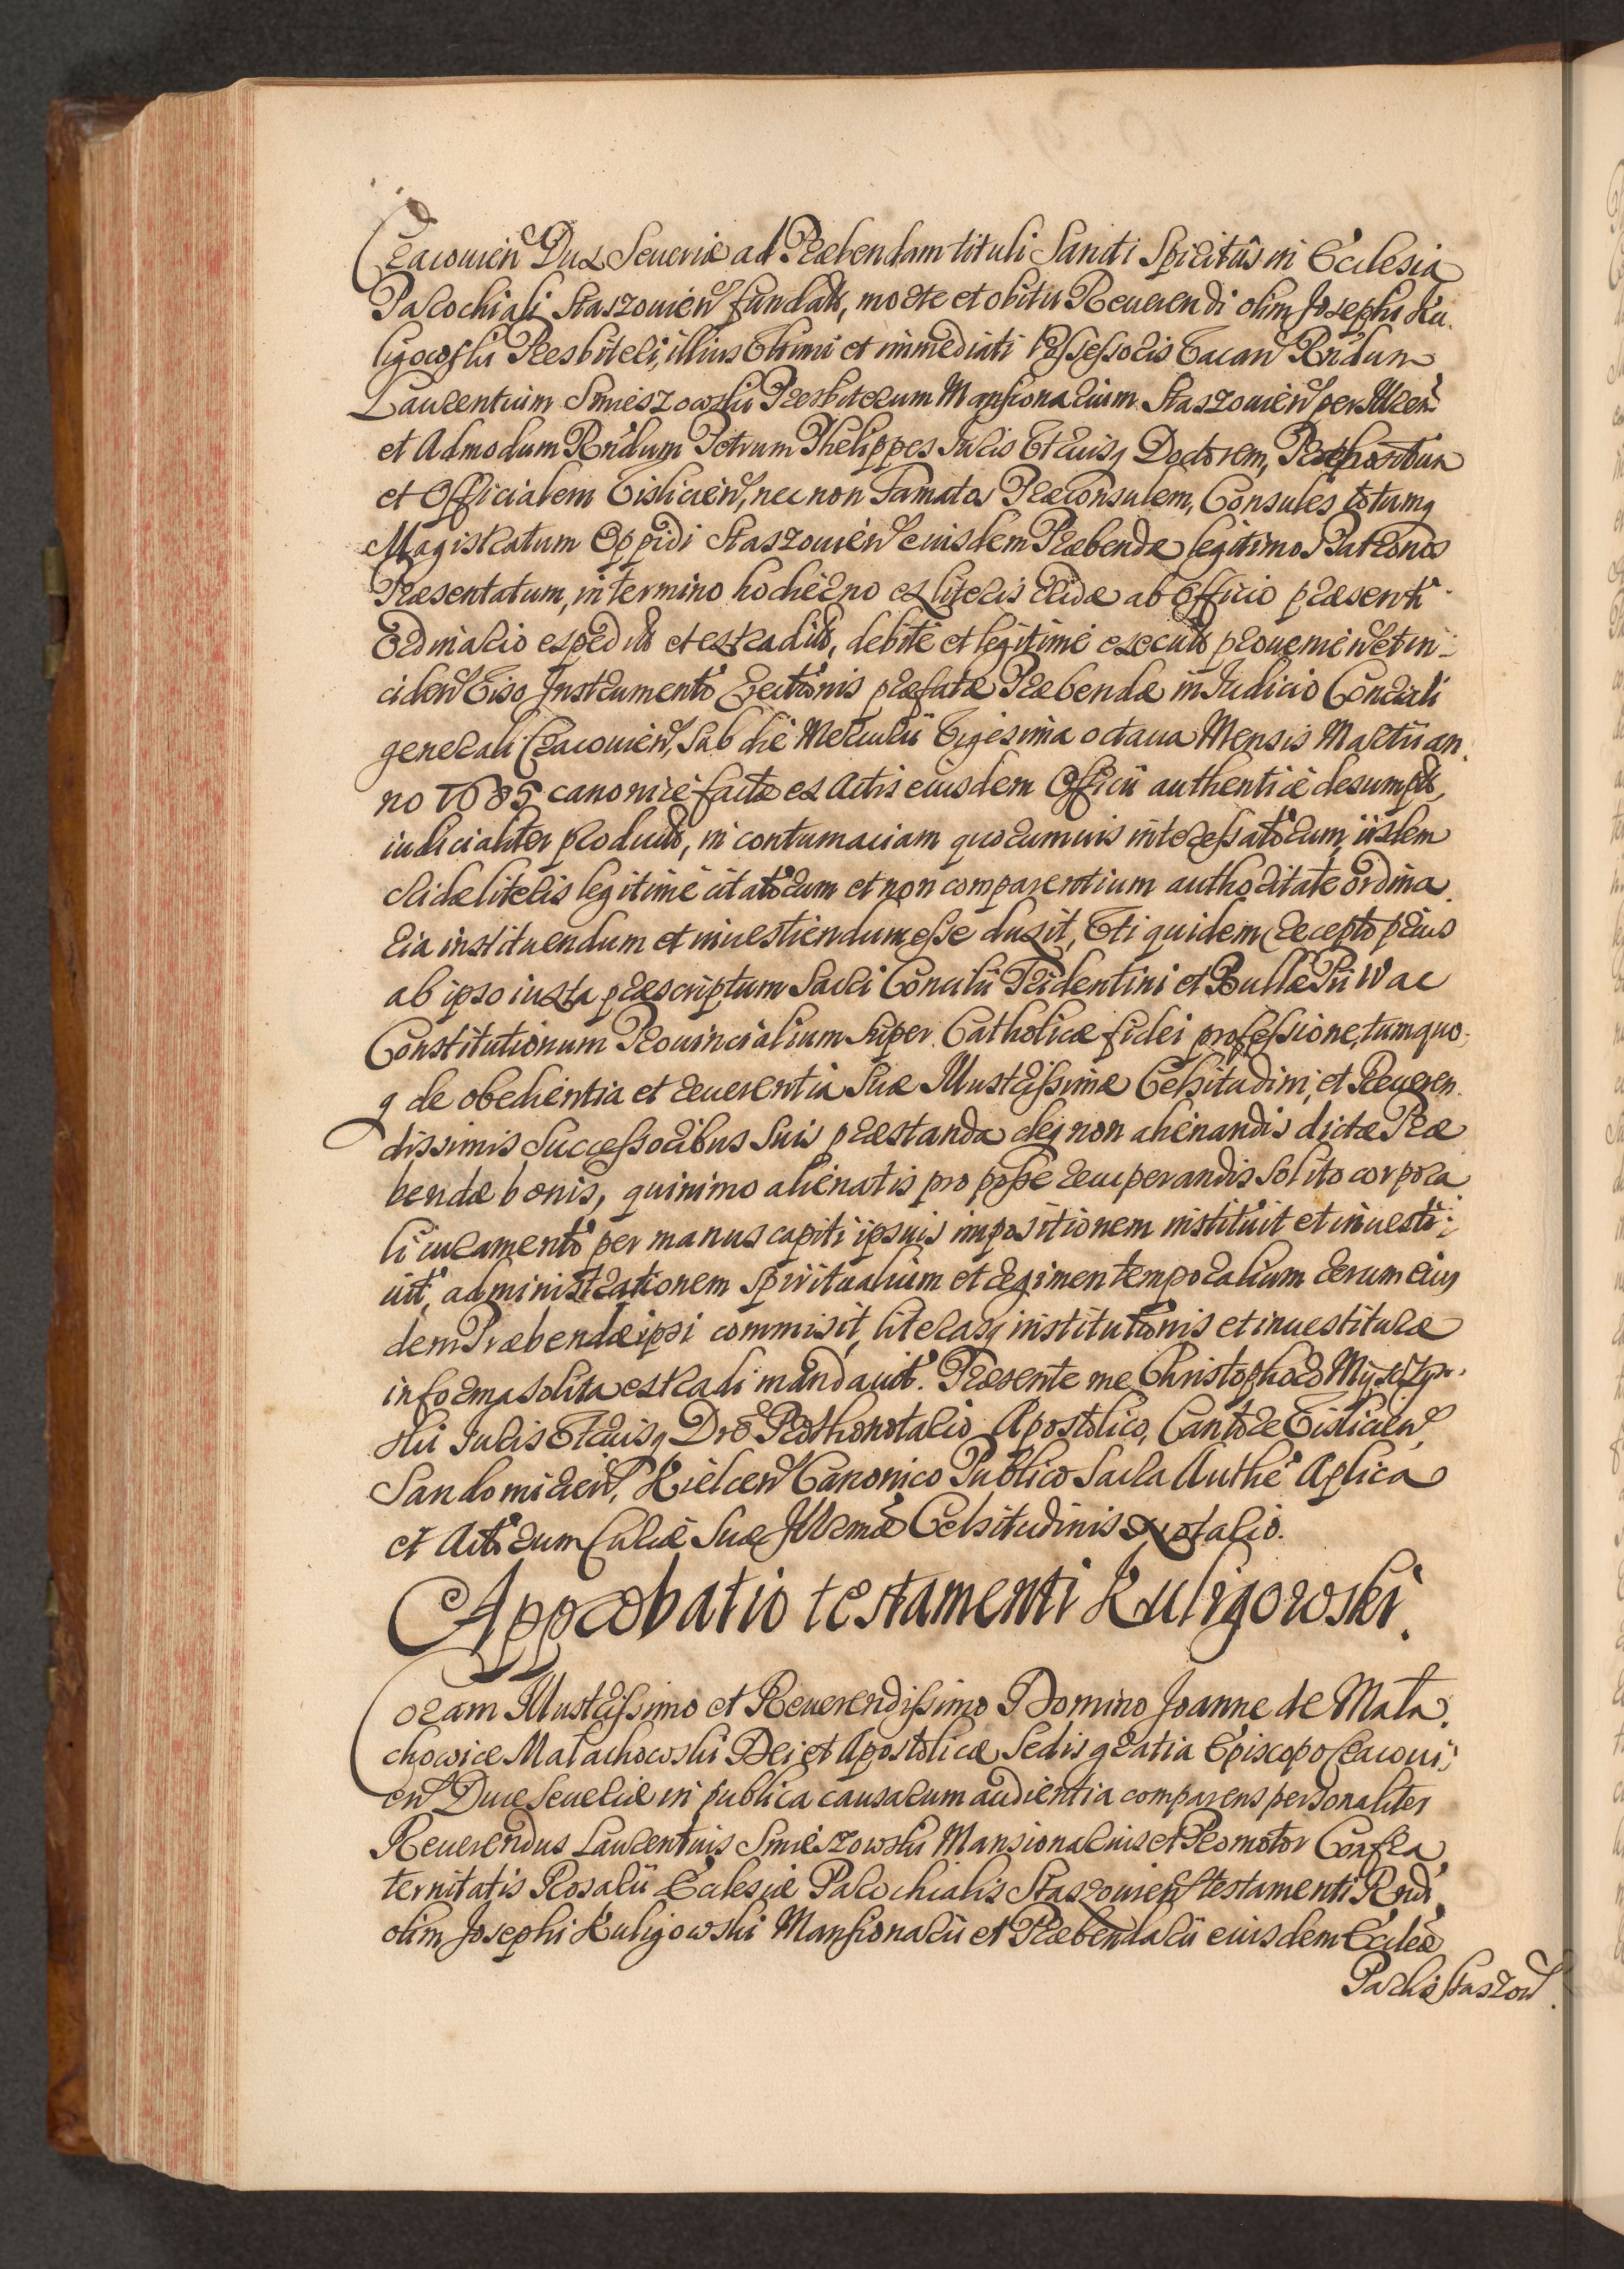 Cracouien Dux Seueriæ ad Præbendam tituli Sancti Spiritûs in Ecclesia
Parochiali Staszouien fundatã, morte et obitu Reuerendi olim Josephi Ku-
ligowski Presbiteri, illius Vltimi et immediati Possessoris Vacan Rndum
Laurentium Smieszowski Presbiterum Mansionarium Staszouien per Illrem
et Admodum Rndum Petrum Phelippes Juris Vtriusq Doctorem, Præpositum
et Officialem Vislicien, nec non Famatos Præconsulem, Consules totumq
Magistratum Oppidi Staszouien eiusdem Præbendæ legitimos Patronos
Præsentatum, in termino hodierno ex literis Cridæ ab Officio præsenti
Ordinario expeditis et extraditis, debité et legitimé executis proueniẽn et in-
ciden Viso Instrumento Erectionis præfatæ Præbendæ in Judicio Consulari
generali Cracouien, sub die Mercurii Vigesima octaua Mensis Martii an-
no 1685 canonicé factæ ex Actis eiusdem Officii authenticé desumpto,
iudicialiter producto, in contumaciam quorumuis interessatorum, iisdem
Cridæ literis legitimé citatorum et non comparentium authoritate ordina-
ria instituendum et inuestiendum esse duxit, Vti quidem recepto prius
ab ipso iuxta præscriptum Sacri Concilii Tridentini et Bullæ Pii IV ac
Constitutionum Prouincialium super Catholicæ fidei professione, tum quo-
q de obedientia et reuerentia Suæ Illustrissimæ Celsitudini, et Reueren-
dissimis Successoribus suis præstanda deq non alienandis dictæ Præ
bendæ bonis, quinimo alienatis pro posse recuperandis solito corpora
li iuramento per manus capiti ipsuis impositionem instituit et inuesti-
uit, administrationem spiritualium et regimen temporalium rerum eius
dem Præbendæ ipsi commisit, literasq institutionis et inuestituræ
in forma solita extradi mandauit. Præsente me Christophoro
Juris Vtriusq Dre Prothonotario Apostolico, Cantore Vislicien,
Sandomirien, Kielcen Canonico Publico Sacra Authe Aplica
et Actorum Curiæ Suæ Illrmæ Celsitudinis Notario.
Approbatio testamenti Kuligowski.
Coram Illustrissimo et Reuerendissimo Domino Joanne de Mała-
chowice Małachowski Dei et Apostolicæ Sedis gratia Episcopo Cracoui-
en Duce Seueriæ in publica causarum audientia comparens personaliter
Reuerendus Laurentius Smieszowski Mansionarius et Promotor Confra
ternitatis Rosarii Ecclesiæ Parochialis Staszouien testamenti Rndi
olim Josephi Kuligowski Mansionarii et Præbendarii eiusdem Ecclæ
Parchis Staszow.